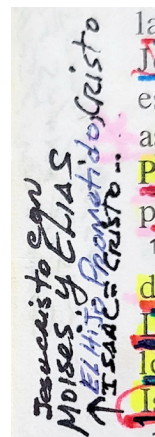 Jesucristo con
Moises y ELIAS
↑ El Hijo Prometido, Cristo
ISAAC = CRISTO...
la
es
a
P
p
d
l